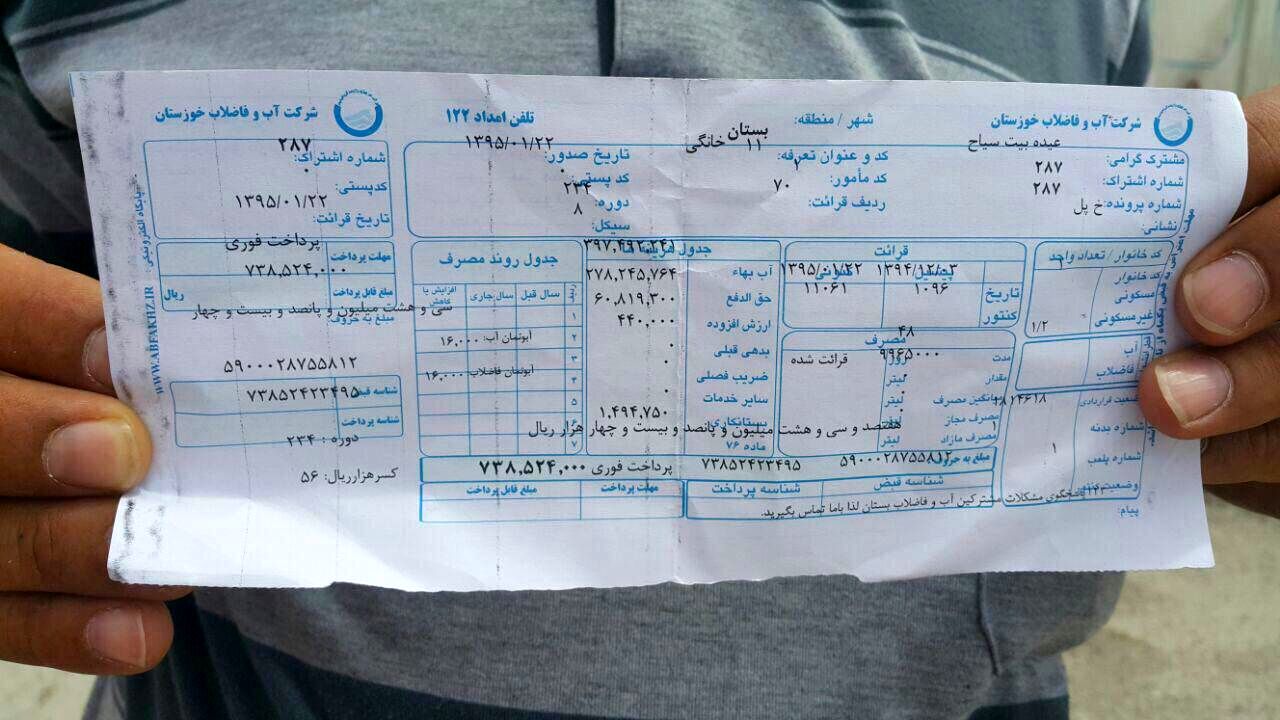 شرکت آب و فاضلاب خوزستان
شهر / منطقه: بستان
تلفن امداد ۱۲۲
مشترک گرامی: عبده بیت سیاح
شماره اشتراک: ۲۸۷
۲۸۷
شماره پرونده:
نشانی: خ پل
کد و عنوان تعرفه: ۱۱ خانگی
کد مأمور: ۲
ردیف قرائت: ۷۰
تاریخ صدور: ۱۳۹۵/۰۱/۲۲
کد پستی: ۰
دوره: ۲۳۴
سیکل: ۸
کد خانوار / تعداد واحد
کد خانوار
مسکونی
غیرمسکونی ۱/۲
آب
فاضلاب
وضعیت قراردادی
شماره بدنه
شماره پلمب
پیام:
قرائت
پیشین کنونی
تاریخ ۱۳۹۴/۱۲/۰۳ ۱۳۹۵/۰۱/۲۲
کنتور ۱۰۹۶ ۱۱۰۶۱
مصرف
مدت ۴۸ روز
مقدار ۹۹۶۵۰۰۰ لیتر قرائت شده
میانگین مصرف لیتر
مصرف مجاز لیتر
مصرف مازاد لیتر
آب بهاء ۳۹۷,۴۹۲,۲۴۱
حق الدفع ۲۷۸,۲۴۵,۷۶۴
ارزش افزوده ۶۰,۸۱۹,۳۰۰
بدهی قبلی ۴۴۰,۰۰۰
ضریب فصلی ۰
سایر خدمات ۰
بستانکاری ۰
ماده ۷۶ ۱,۴۹۴,۷۵۰
جدول روند مصرف
ردیف سال قبل سال جاری افزایش یا کاهش
۱
۲ آبونمان آب: ۱۶,۰۰۰
۳
۴ آبونمان فاضلاب: ۱۶,۰۰۰
۵
۷
هفتصد و سی و هشت میلیون و پانصد و بیست و چهار هزار ریال
مبلغ به حروف: ۵۹۰۰۰۲۸۷۵۵۸۱۲ ۷۳۸۵۲۴۲۳۴۹۵ پرداخت فوری ۷۳۸,۵۲۴,۰۰۰
شناسه قبض شناسه پرداخت مهلت پرداخت مبلغ قابل پرداخت
پاسخگوی مشکلات مشترکین آب و فاضلاب بستان لذا باما تماس بگیرید.
شرکت آب و فاضلاب خوزستان
شماره اشتراک: ۲۸۷
کدپستی: ۰
تاریخ قرائت: ۱۳۹۵/۰۱/۲۲
مهلت پرداخت پرداخت فوری
مبلغ قابل پرداخت ۷۳۸,۵۲۴,۰۰۰ ریال
مبلغ به حروف: سی و هشت میلیون و پانصد و بیست و چهار
۵۹۰۰۰۲۸۷۵۵۸۱۲
شناسه قبض ۷۳۸۵۲۴۲۳۴۹۵
شناسه پرداخت
دوره : ۲۳۴
کسرهزارریال: ۵۶
WWW.ABFAKHZ.IR
پایگاه الکترونیکی: